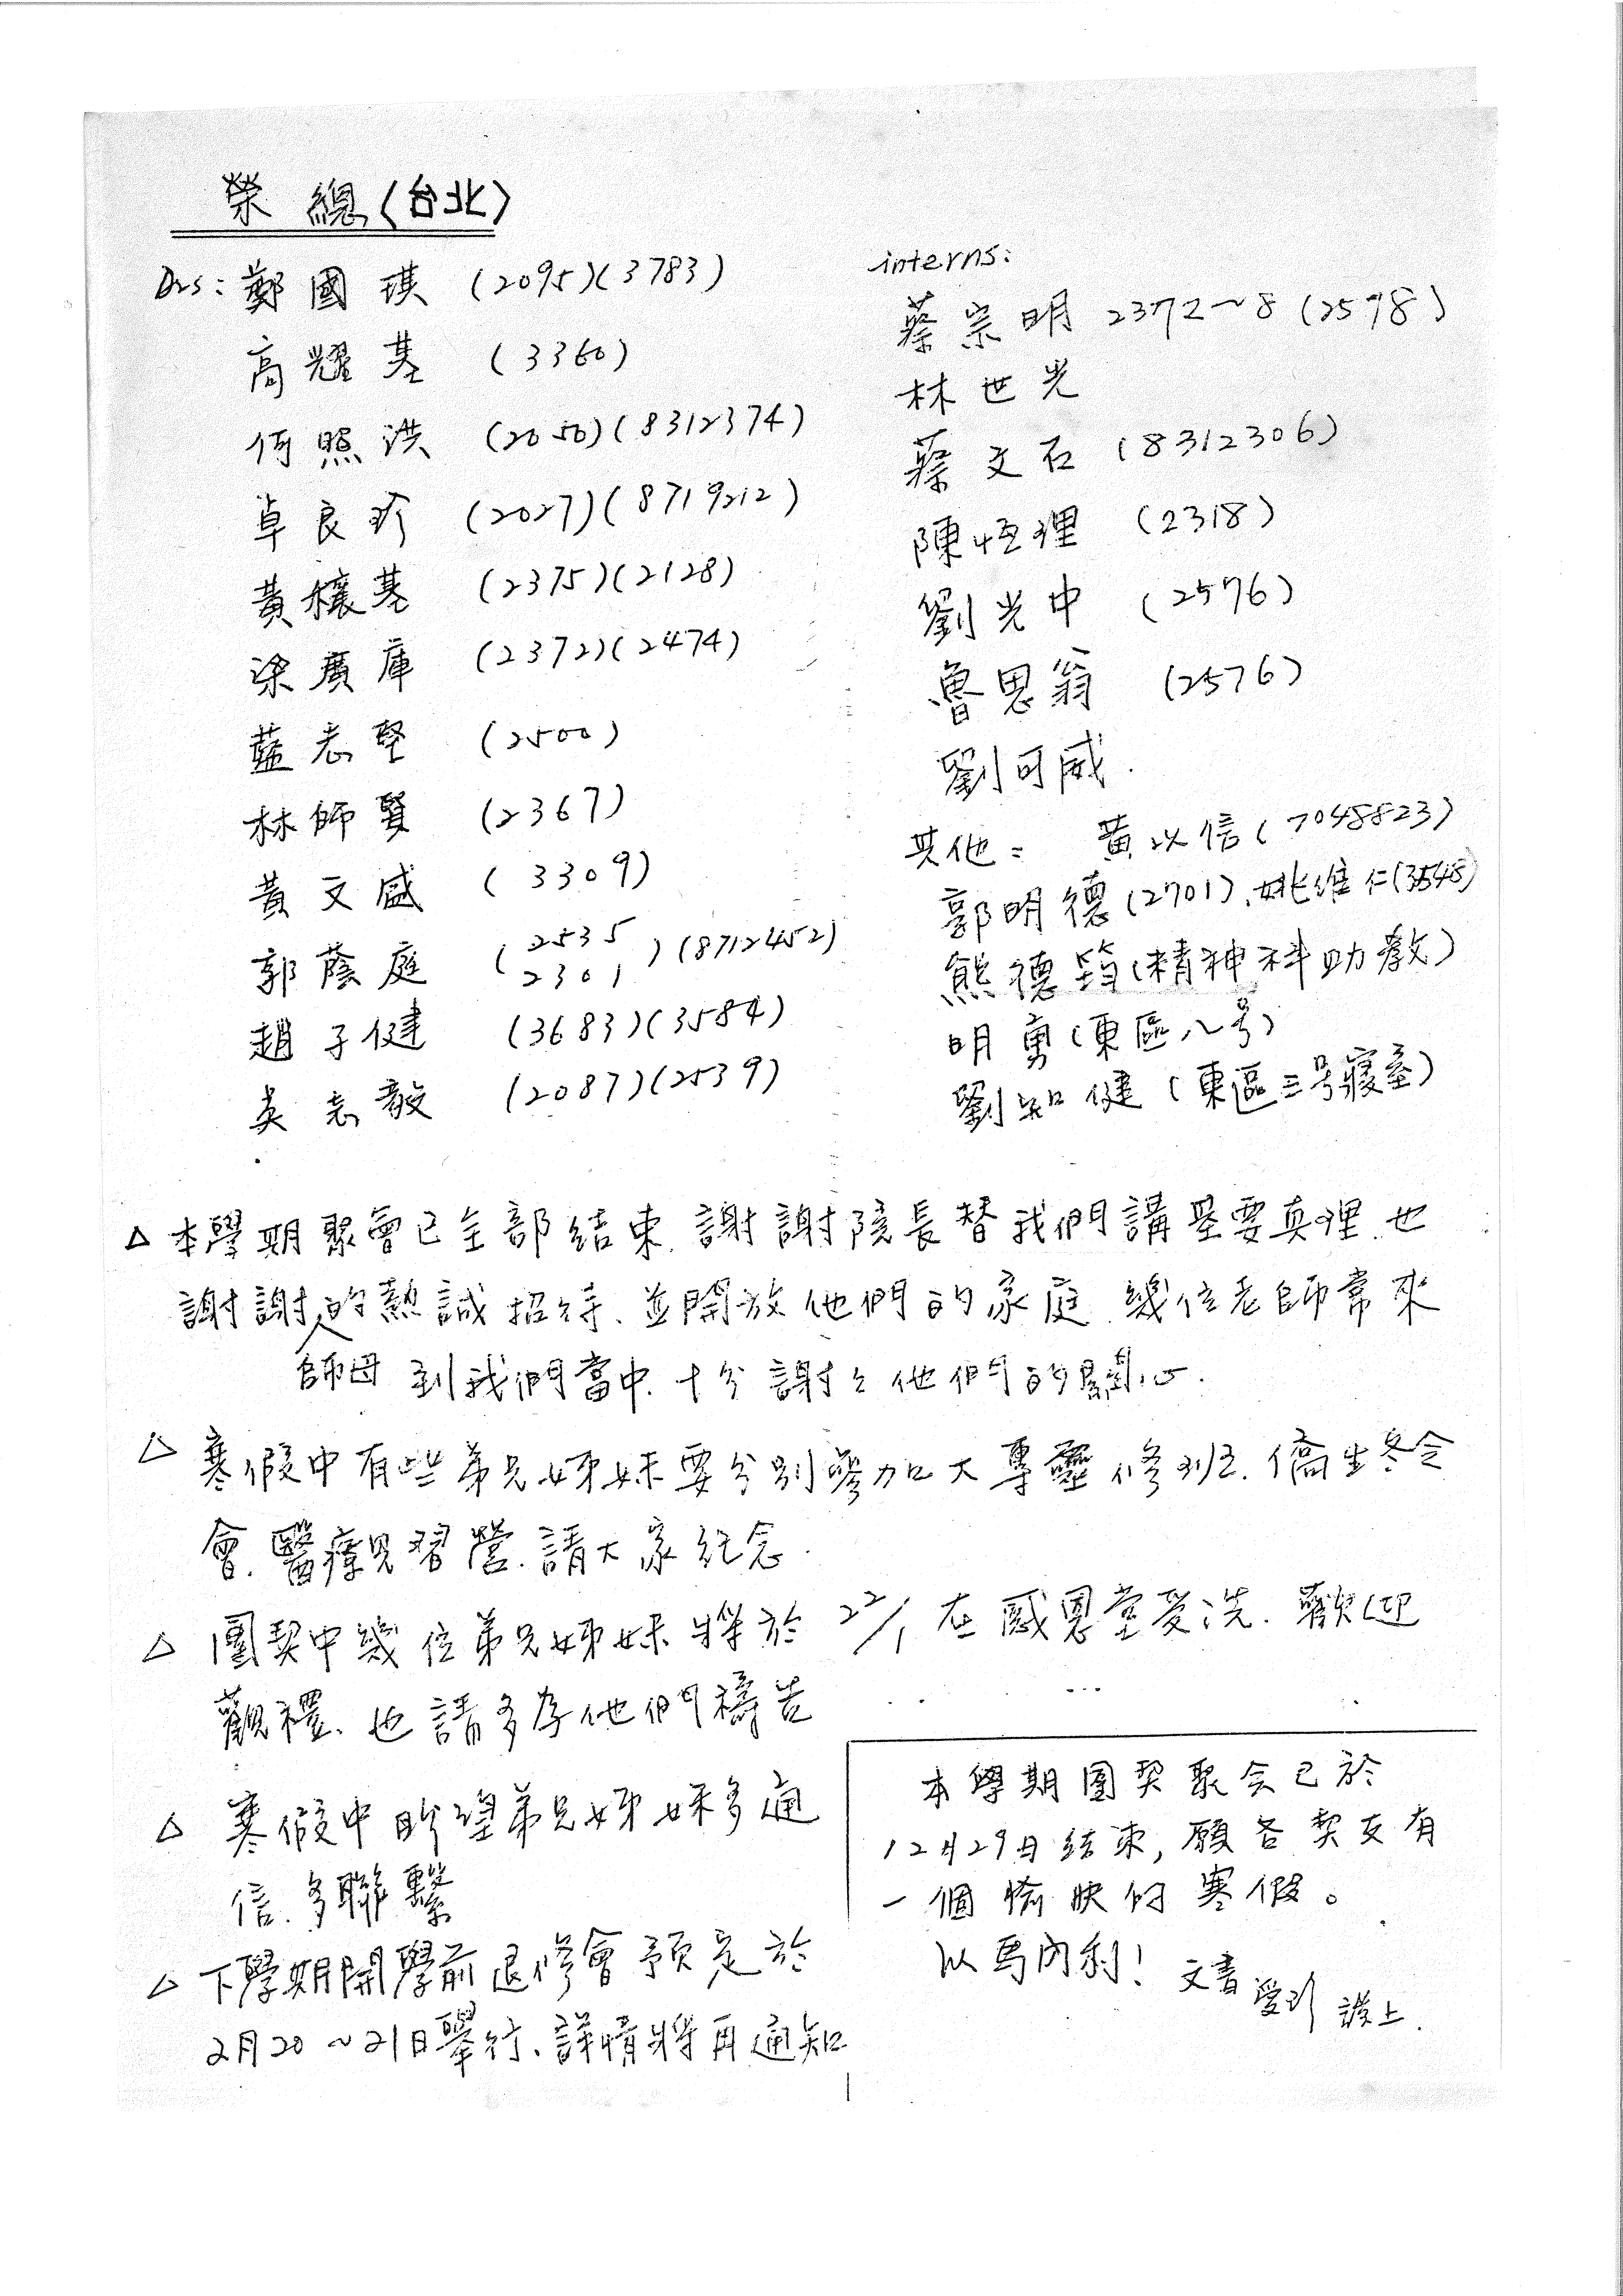 榮總(台北)
Drs: 鄭國琪 (2095)(3783)
高耀基 (3360)
何照洪 (2050)(8312374)
卓良珍 (2027)(8719212)
黃穰基 (2375)(2128)
梁廣庫 (2372)(2474)
藍志堅 (2500)
林師賢 (2367)
黃文盛 (3309)
郭蔭庭 (2535 2301) (8712452)
趙子健 (3683)(3584)
吳志毅 (2087)(2539)
interns:
蔡宗明 2372~8 (2578)
林世光
蔡文石 (8312306)
陳恆理 (2318)
劉光中 (2576)
魯思翁 (2576)
劉可威.
其他: 黃以信(7048823)
郭明德(2701)、姚維仁(3548)
熊德筠(精神科助教)
明勇(東區八号)
劉知健(東區三号寢室)
△ 本學期聚會已全部結束.謝謝院長替我們講基要真理.也
謝謝師母的熱誠招待、並開放他們的家庭.幾位老師常來
到我們當中.十分謝々他們的關心.
△ 寒假中有些弟兄姊妹要分別參加大專靈修班.僑生冬令
會.醫療見習營.請大家紀念.
△ 團契中幾位弟兄姊妹將於 22/1 在感恩堂受洗.歡迎
觀禮、也請多為他們禱告
△ 寒假中盼望弟兄姊妹多通
信.多聯繫
△ 下學期開學前退修會予定於
2月20~21日舉行、詳情將再通知
本學期團契聚会已於
12月29日結束,願各契友有
一個愉快的寒假。
以馬內利! 文書 謹上.